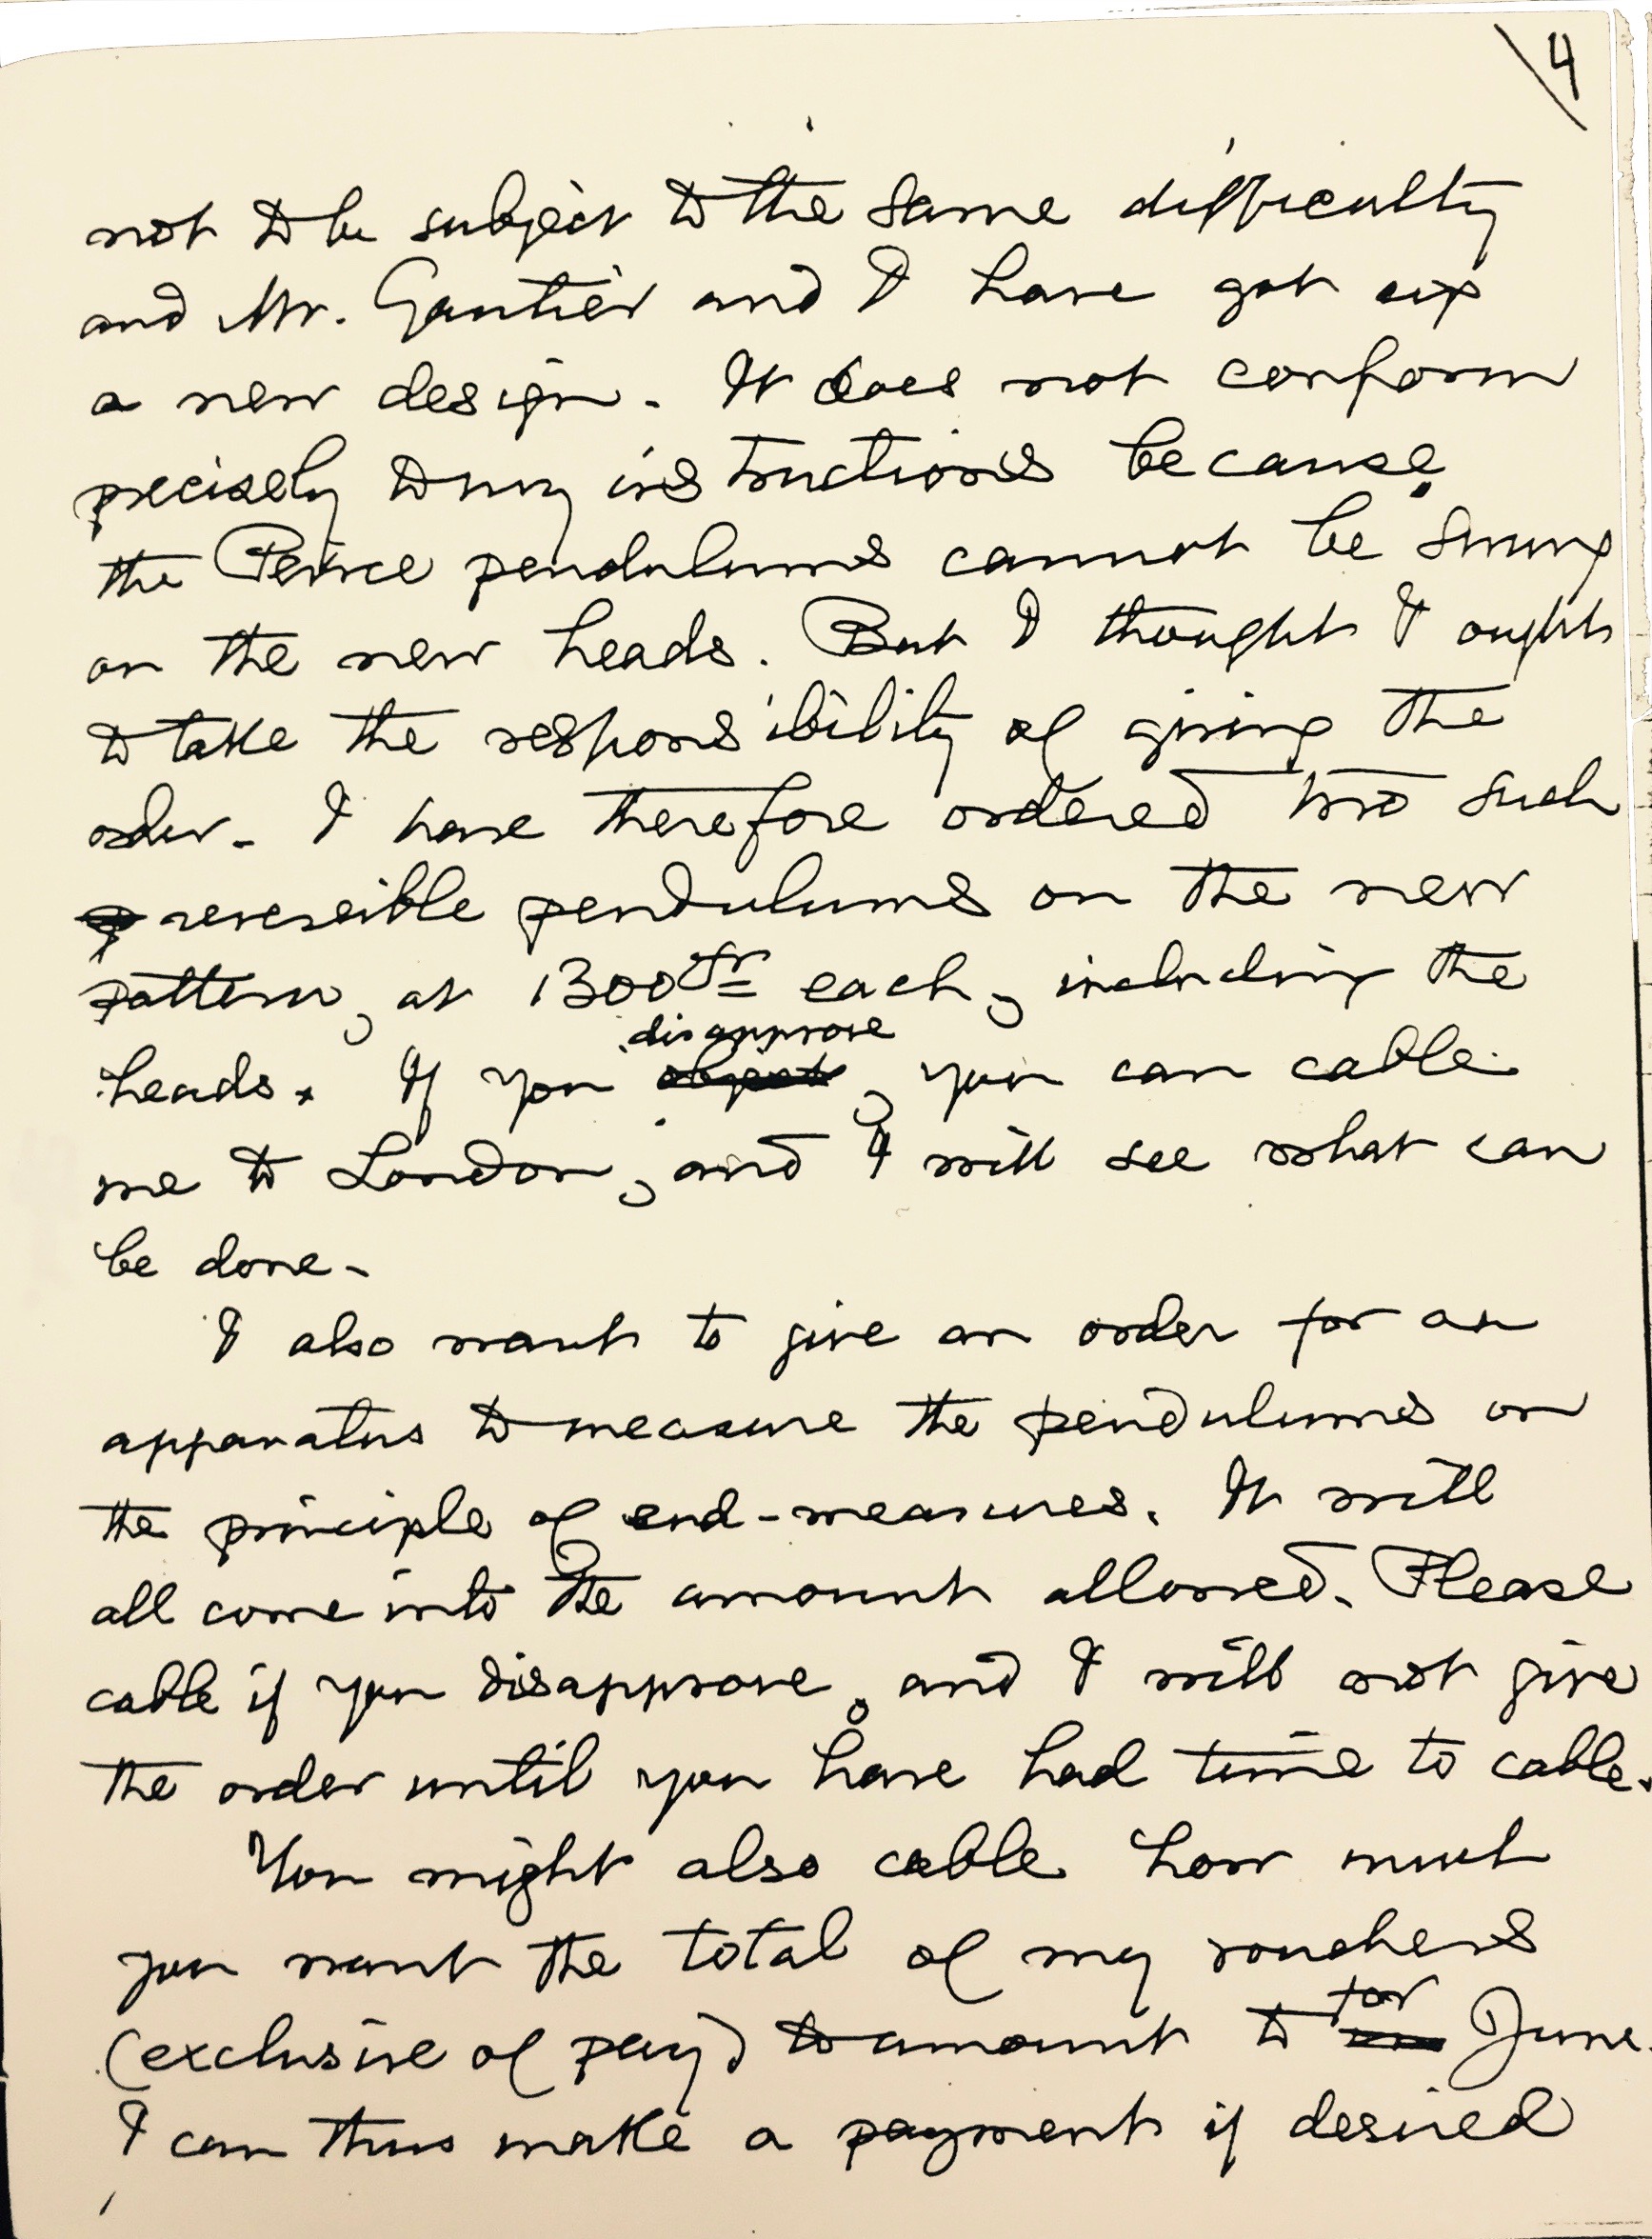 4
not to be subject to the same difficulty
and Mr. Gautier and I have got up
a new design. It does not conform
precisely to my instructions because
the Peirce pendulums cannot be swung
on the new heads. But I thought I ought
to take the responsibility of giving the
order. I have therefore ordered two such
reversible pendulums on the new
pattern, at 1300fr each, including the
disapprove
heads. If you object, you can cable
me to London, and I will see what can
be done.
I also want to give an order for an
apparatus to measure the pendulums on
the principle of end-measures. It will
all come into the amount allowed. Please
cable if you disapprove, and I will not give
the order until you have had time to cable.
You might also cable how much
you want the total of my vouchers
for
(exclusive of pay) to amount to June.
I can thus make a payment if desired